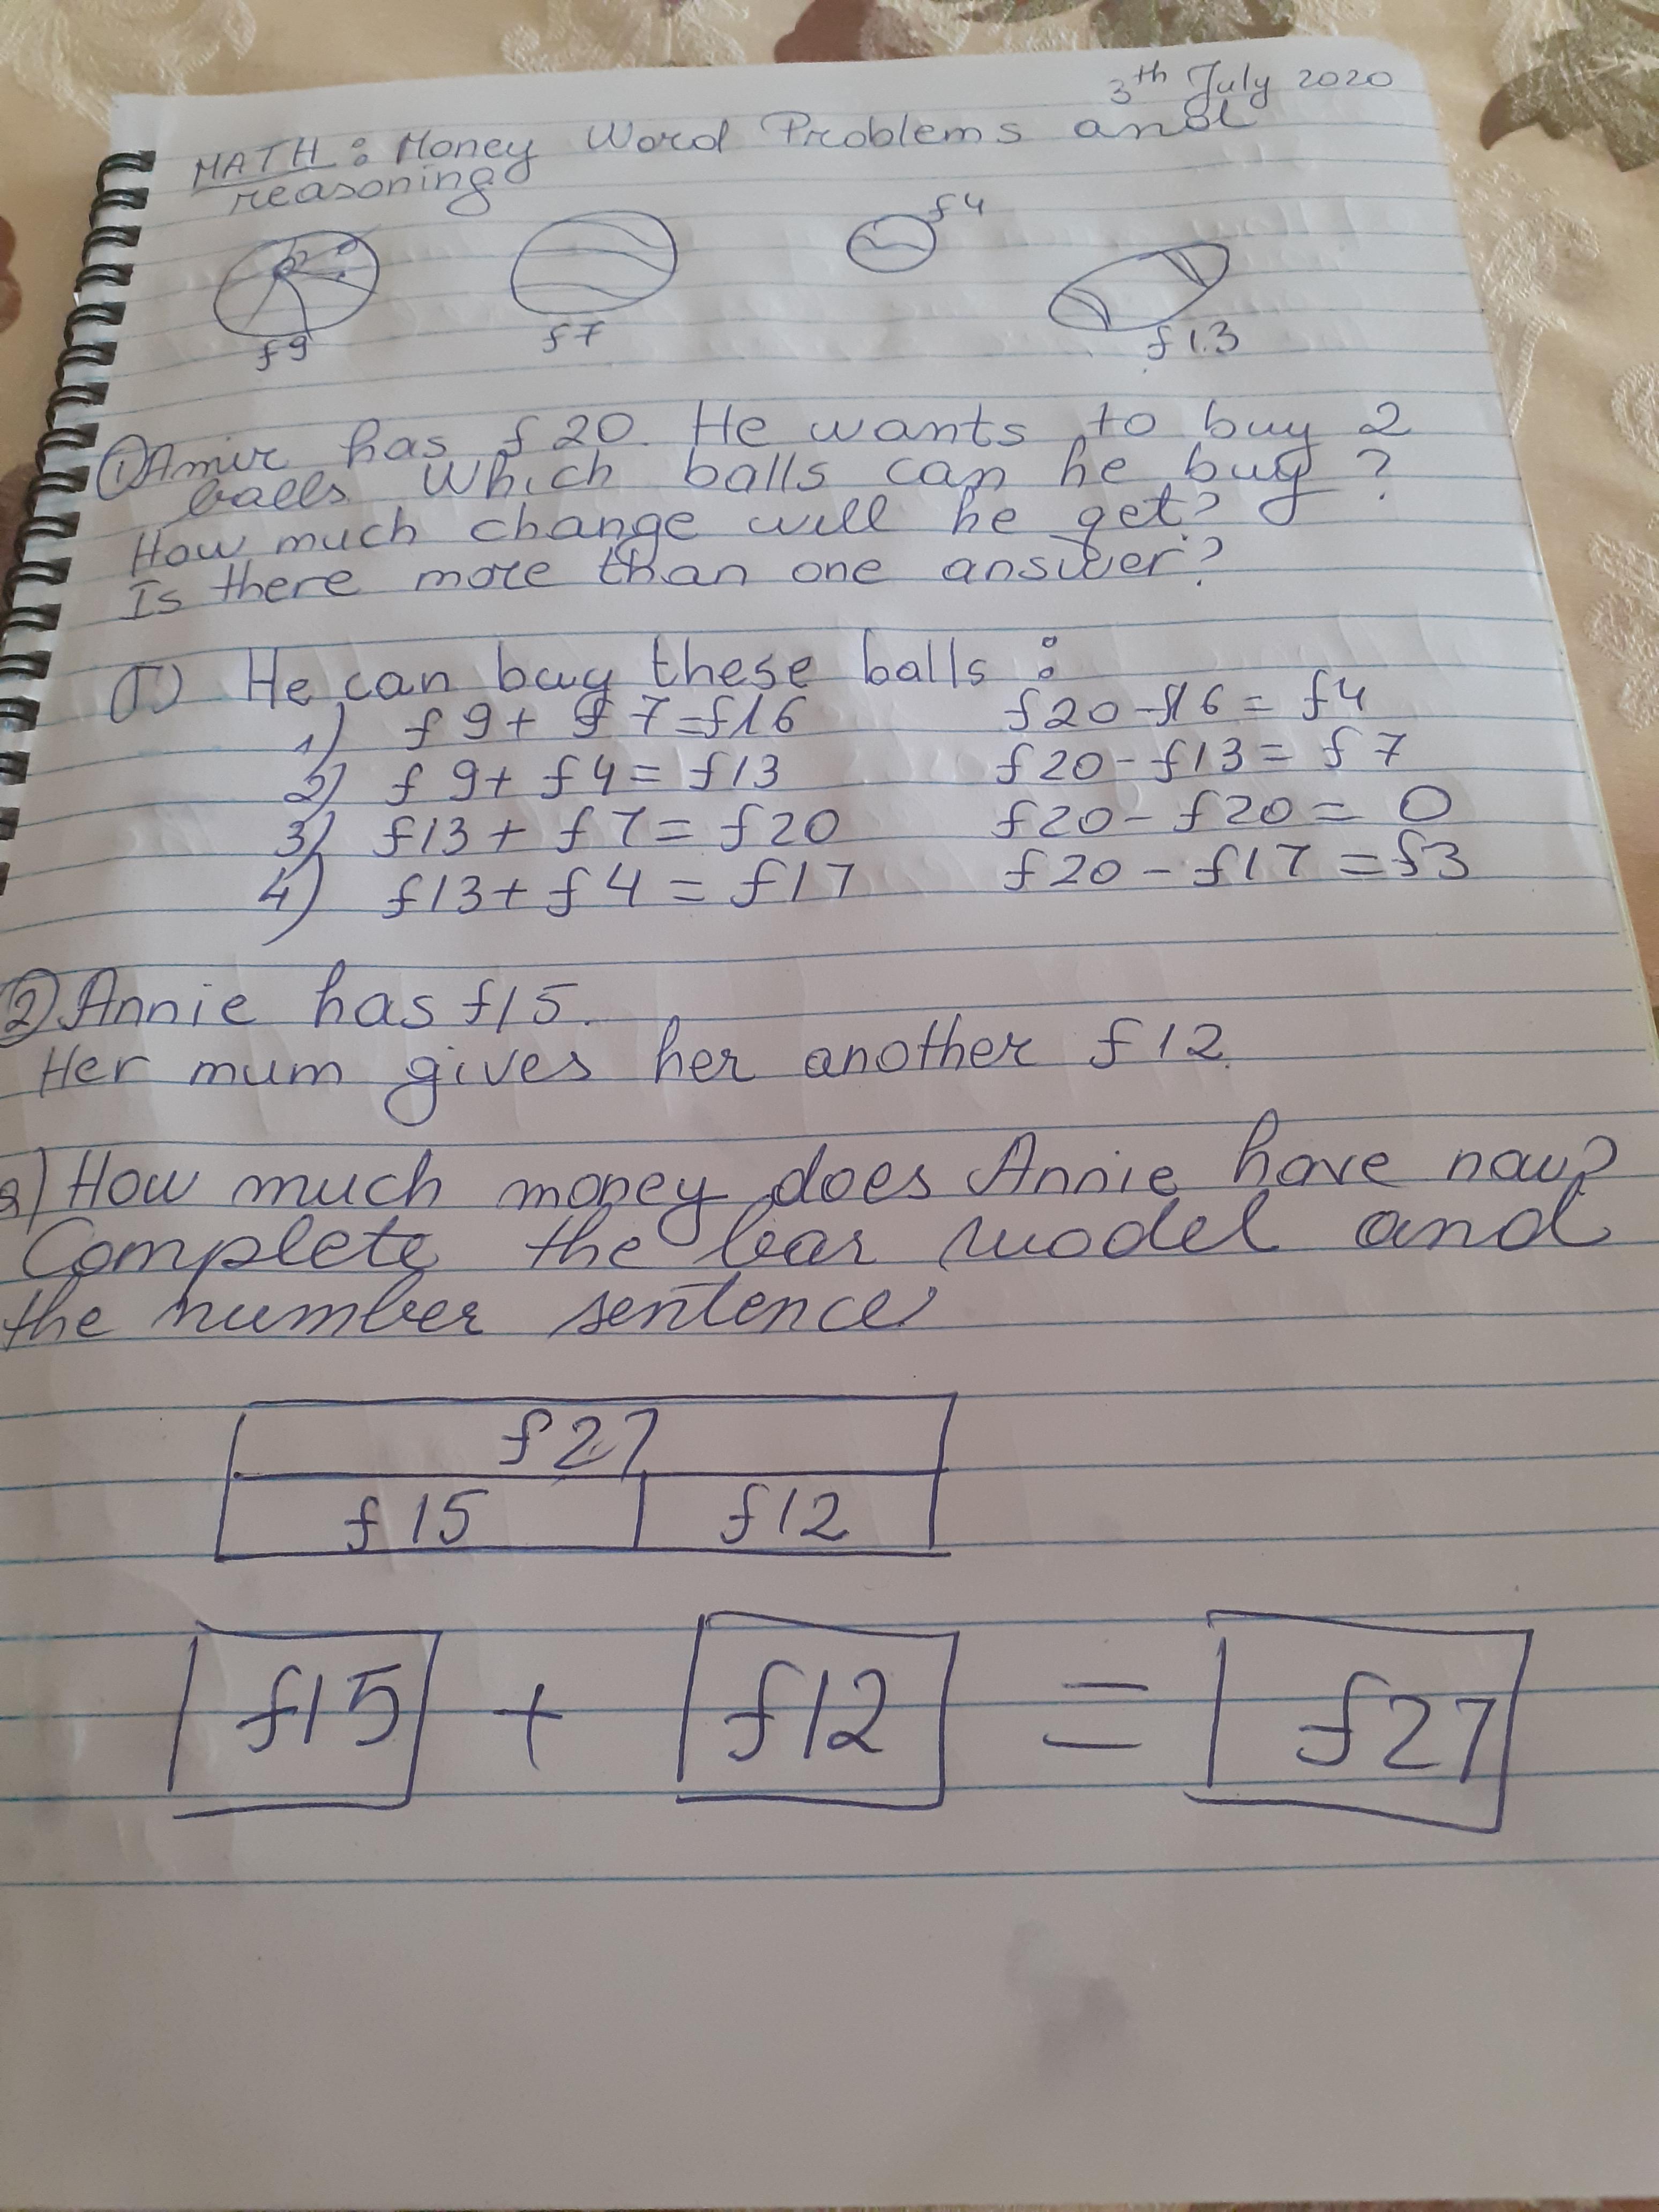 3th July 2020
MATH: Money Word Problems and
reasoning
f 9
f 7
f 4
f 13
① Amir has f 20. He wants to buy 2
balls. Which balls can he buy?
How much change will he get?
Is there more than one answer?
① He can buy these balls:
1) f 9 + f 7 = f16 f20 - f16 = f4
2) f 9 + f 4 = f13 f20 - f13 = f 7
3) f13 + f 7 = f20 f20 - f20 = 0
4) f13 + f 4 = f17 f20 - f17 = f3
② Annie has f15.
Her mum gives her another f12.
a) How much money does Annie have now?
Complete the bar model and
the number sentence
f27
f 15 f12
f15 + f12 = f27